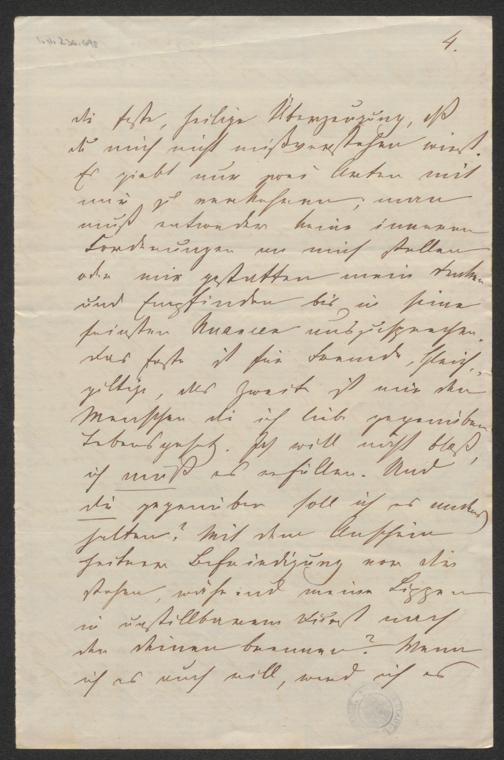 4.
die feste, heilige Überzeugung, daß
du mich nicht mißverstehen wirst.
Es giebt nur zwei Arten mit
mir zu verkehren; man
muß entweder keine inneren
Forderungen an mich stellen
oder mir gestatten mein Denken
und Empfinden bis in seine
feinsten Nuancen auszusprechen.
Das erste ist für Fremde, Gleich-
gültige, das zweite ist mir den
Menschen die ich liebe gegenüber
Lebensgesetz. Ich will nicht bloß,
ich muß es erfüllen. Und
dir gegenüber soll ich es anders
halten? Mit dem Anschein
heiterer Befriedigung vor dir
stehen, während meine Lippen
in unstillbarem Durst nach
den deinen brennen? Wenn
ich es auch will, werd ich es